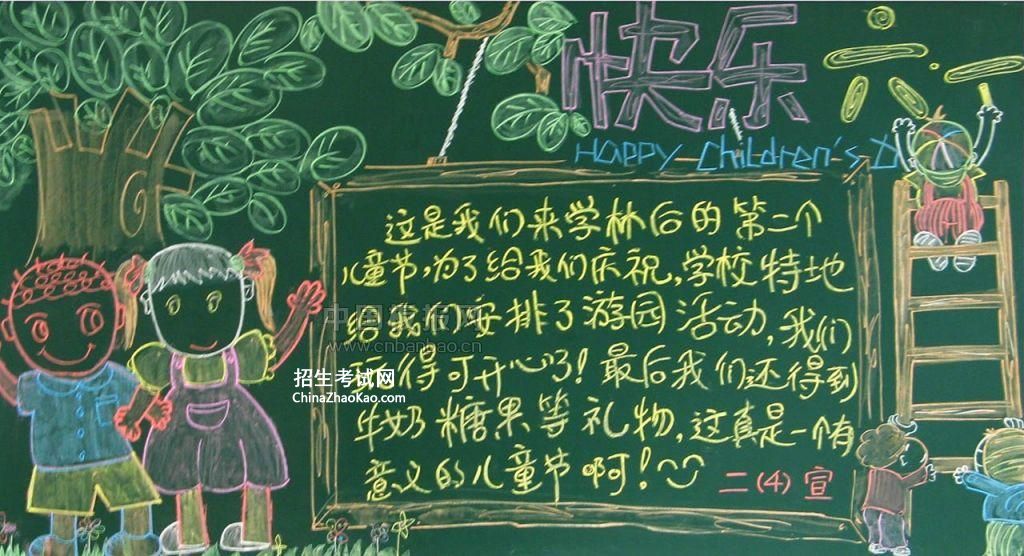 快乐六一
Happy Children's D
这是我们来学林后的第二个
儿童节,为了给我们庆祝,学校特地
给我们安排了游园活动,我们
得可开心了!最后我们还得到
牛奶糖果等礼物,这真是一个有
意义的儿童节啊!
二(4)宣
中国板报网
www.cnbanbao.cn
招生考试网
ChinaZhaoKao.com